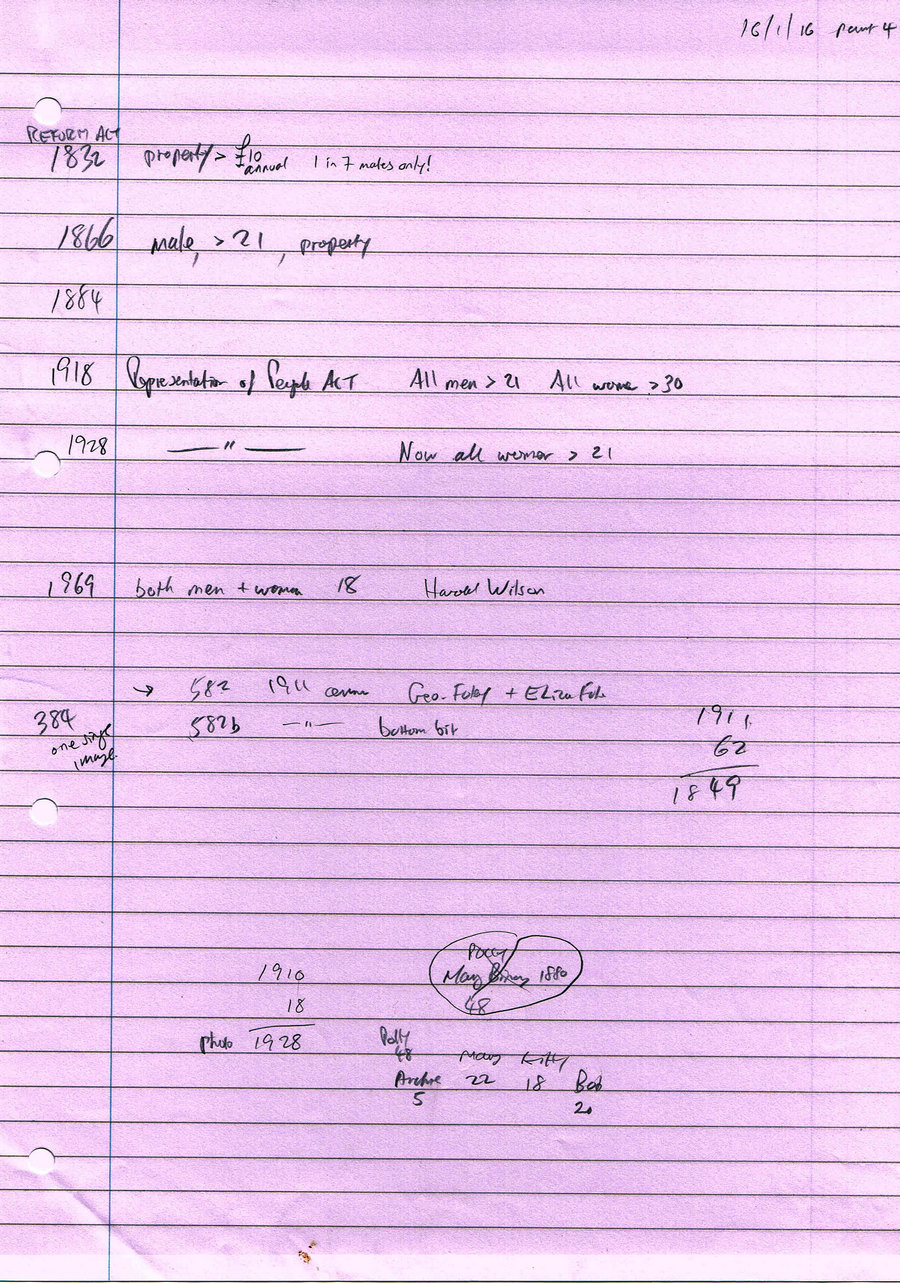 16/1/16 part 4
REFORM ACT
1832 property > £10 annual 1 in 7 males only!
1866 male, > 21, property
1884
1918 Representation of People ACT All men > 21 All women > 30
1928 —— " —— Now all women > 21
1969 both men + women 18 Harold Wilson
→ 582 1911 census Geo. Foley + Eliza
384 582b —"— bottom bit
one single image
1911
62
1849
Polly
1910 Mary 1880
18 48
photo 1928 Polly
48 Mary Kitty
Archie 22 18 Bob
5 20